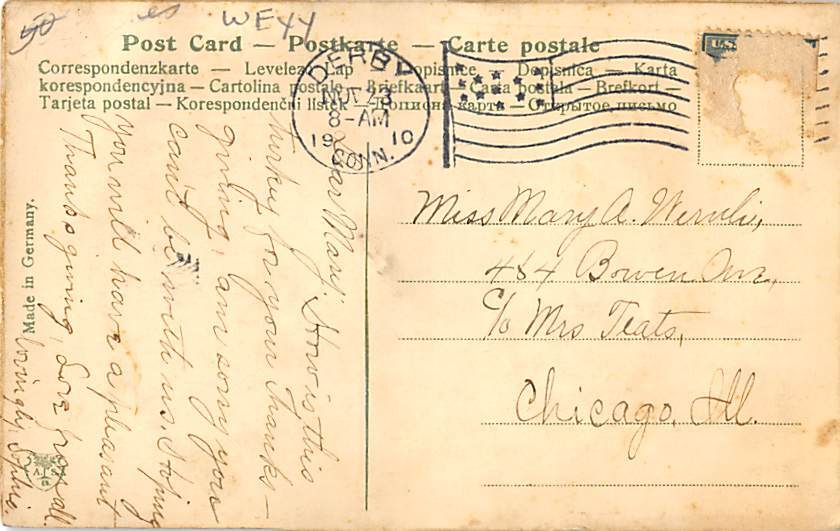 50
es
WE44
Post Card — Postkarte — Carte postale
Correspondenzkarte — Levelez Lap — Dopisnica — Karta
korespondencyjna — Cartolina postale — Briefkaart — Carta postala — Brefkort —
Tarjeta postal — Korespondenční lístek — карта — Открытое письмо
DERBY
8-AM
19 10
CONN.
Dear Mary. How is this
turkey for your Thanks-
giving, am sorry you
can't be with us. Hoping
you will have a pleasant
Thanksgiving, Love from all.
lovingly,
Made in Germany.
Miss Mary A.
484 Bowen Ave,
c/o Mrs Teats,
Chicago, Ill.